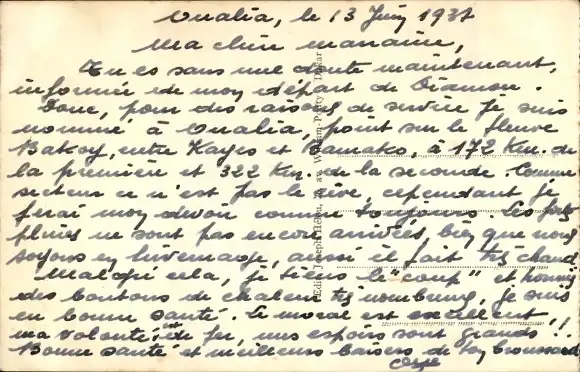 Oualia, le 13 Juin 1937
Ma chère marraine,
Tu es sans une doute maintenant,
informée de mon départ de
Donc, pour des raisons de service je suis
nommé à Oualia, point sur le fleuve
Bakoy, entre Kayes et Bamako, à 172 Km. de
la première et 322 Km. de la seconde. Comme
secteur ce n'est pas le rêve, cependant je
ferai mon devoir comme toujours. Les fortes
pluies ne sont pas encore arrivées, bien que nous
soyons en hivernage, aussi il fait très chaud.
Malgré cela, je tiens le "coup" et hormis
des boutons de chaleur très nombreux, je suis
en bonne santé. Le moral est excellent,
ma volonté est de fer, mes espoirs sont grands!!
Bonne santé et meilleurs baisers de ton broussard